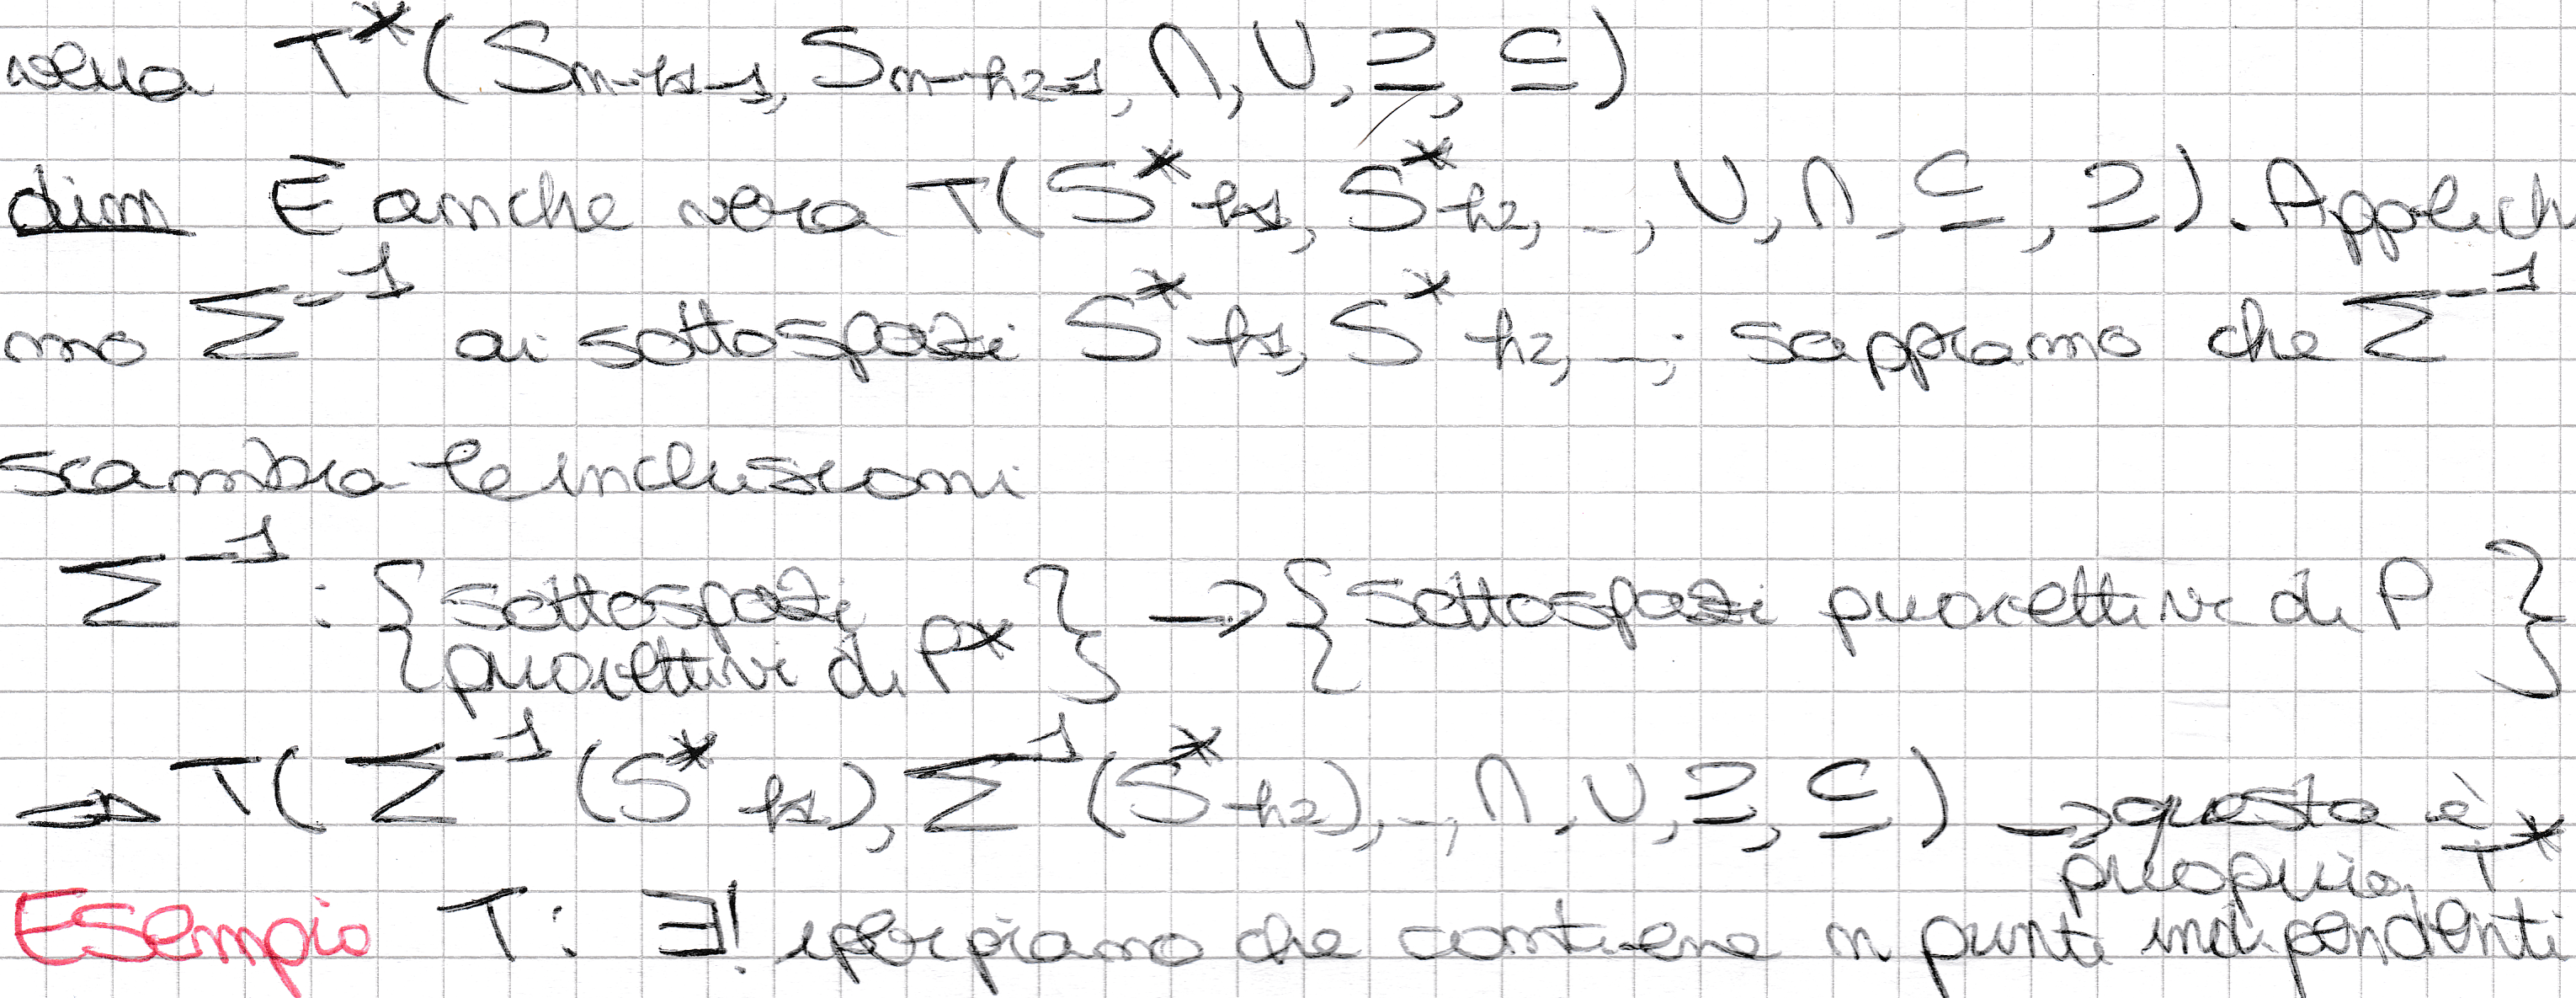 vera T*(S_{n-h1-1}, S_{n-h2-1}, ∩, ∪, ⊇, ⊆)
dim È anche vera T(S*_{h1}, S*_{h2}, .., ∪, ∩, ⊆, ⊇). Applich
mo Σ⁻¹ ai sottospazi S*_{h1}, S*_{h2}, ..; sappiamo che Σ⁻¹
scambia le inclusioni
Σ⁻¹ : { sottospazi proiettivi di P* } → { sottospazi proiettivi di P }
⇒ T( Σ⁻¹(S*_{h1}), Σ⁻¹(S*_{h2}), .., ∩, ∪, ⊇, ⊆ ) → questa è
propria T*
Esempio T: ∃! iperpiano che contiene n punti indipendenti